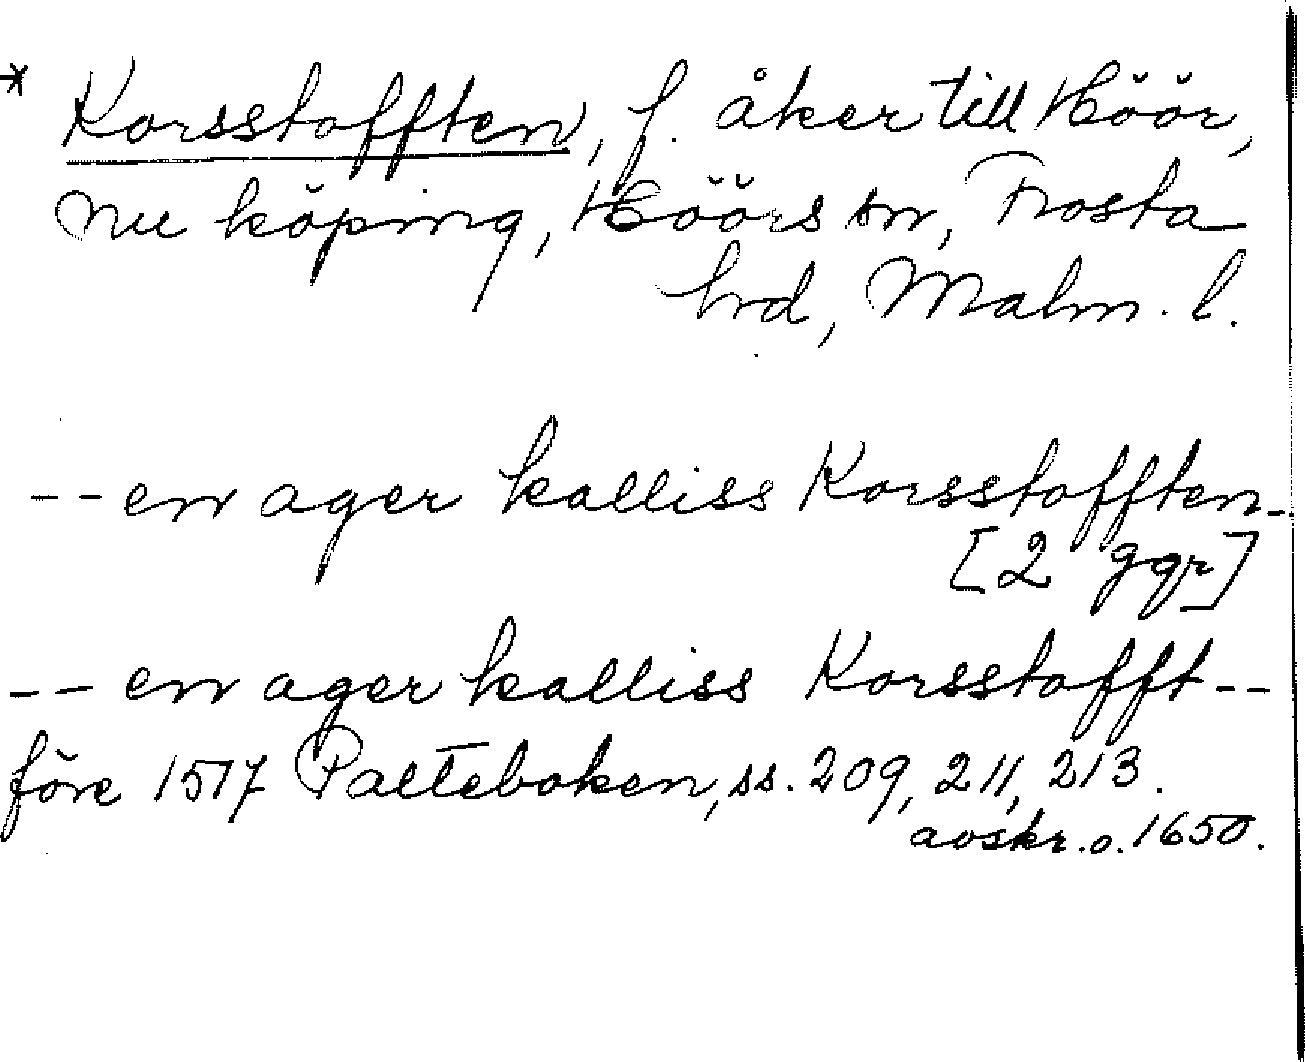 * Korsstofften, f. åker till Höör,
nu köping, Höörs sn, Frosta
hrd, Malm. l.
-- en ager kalliss Korsstofften-.
[2 ggr]
-- en ager kalliss Korsstofft --
före 1517 Palteboken, ss. 209, 211, 213.
avskr. o. 1650.